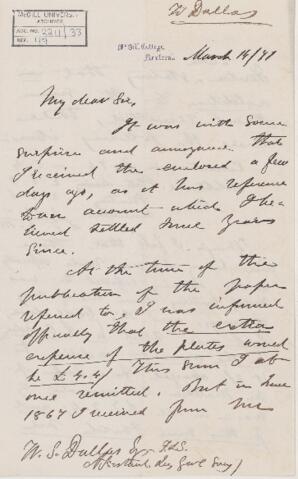 W Dallas
McGILL UNIVERSITY
ARCHIVES
ACC. NO. 2211/33
REF. 119
McGill College
Montreal
March 16/71
My dear Sir,
It was with some
surprise and annoyance that
I received the enclosed a few
days ago, as it has reference
to an account which I be-
lieved settled some years
since.
At the time of the
publication of the paper
referred to, I was informed
officially that the extra
expense of the plates would
be £4.4/ This sum I at
once remitted. But in June
1867 I received from
W. S. Dallas Esq F.L.S.